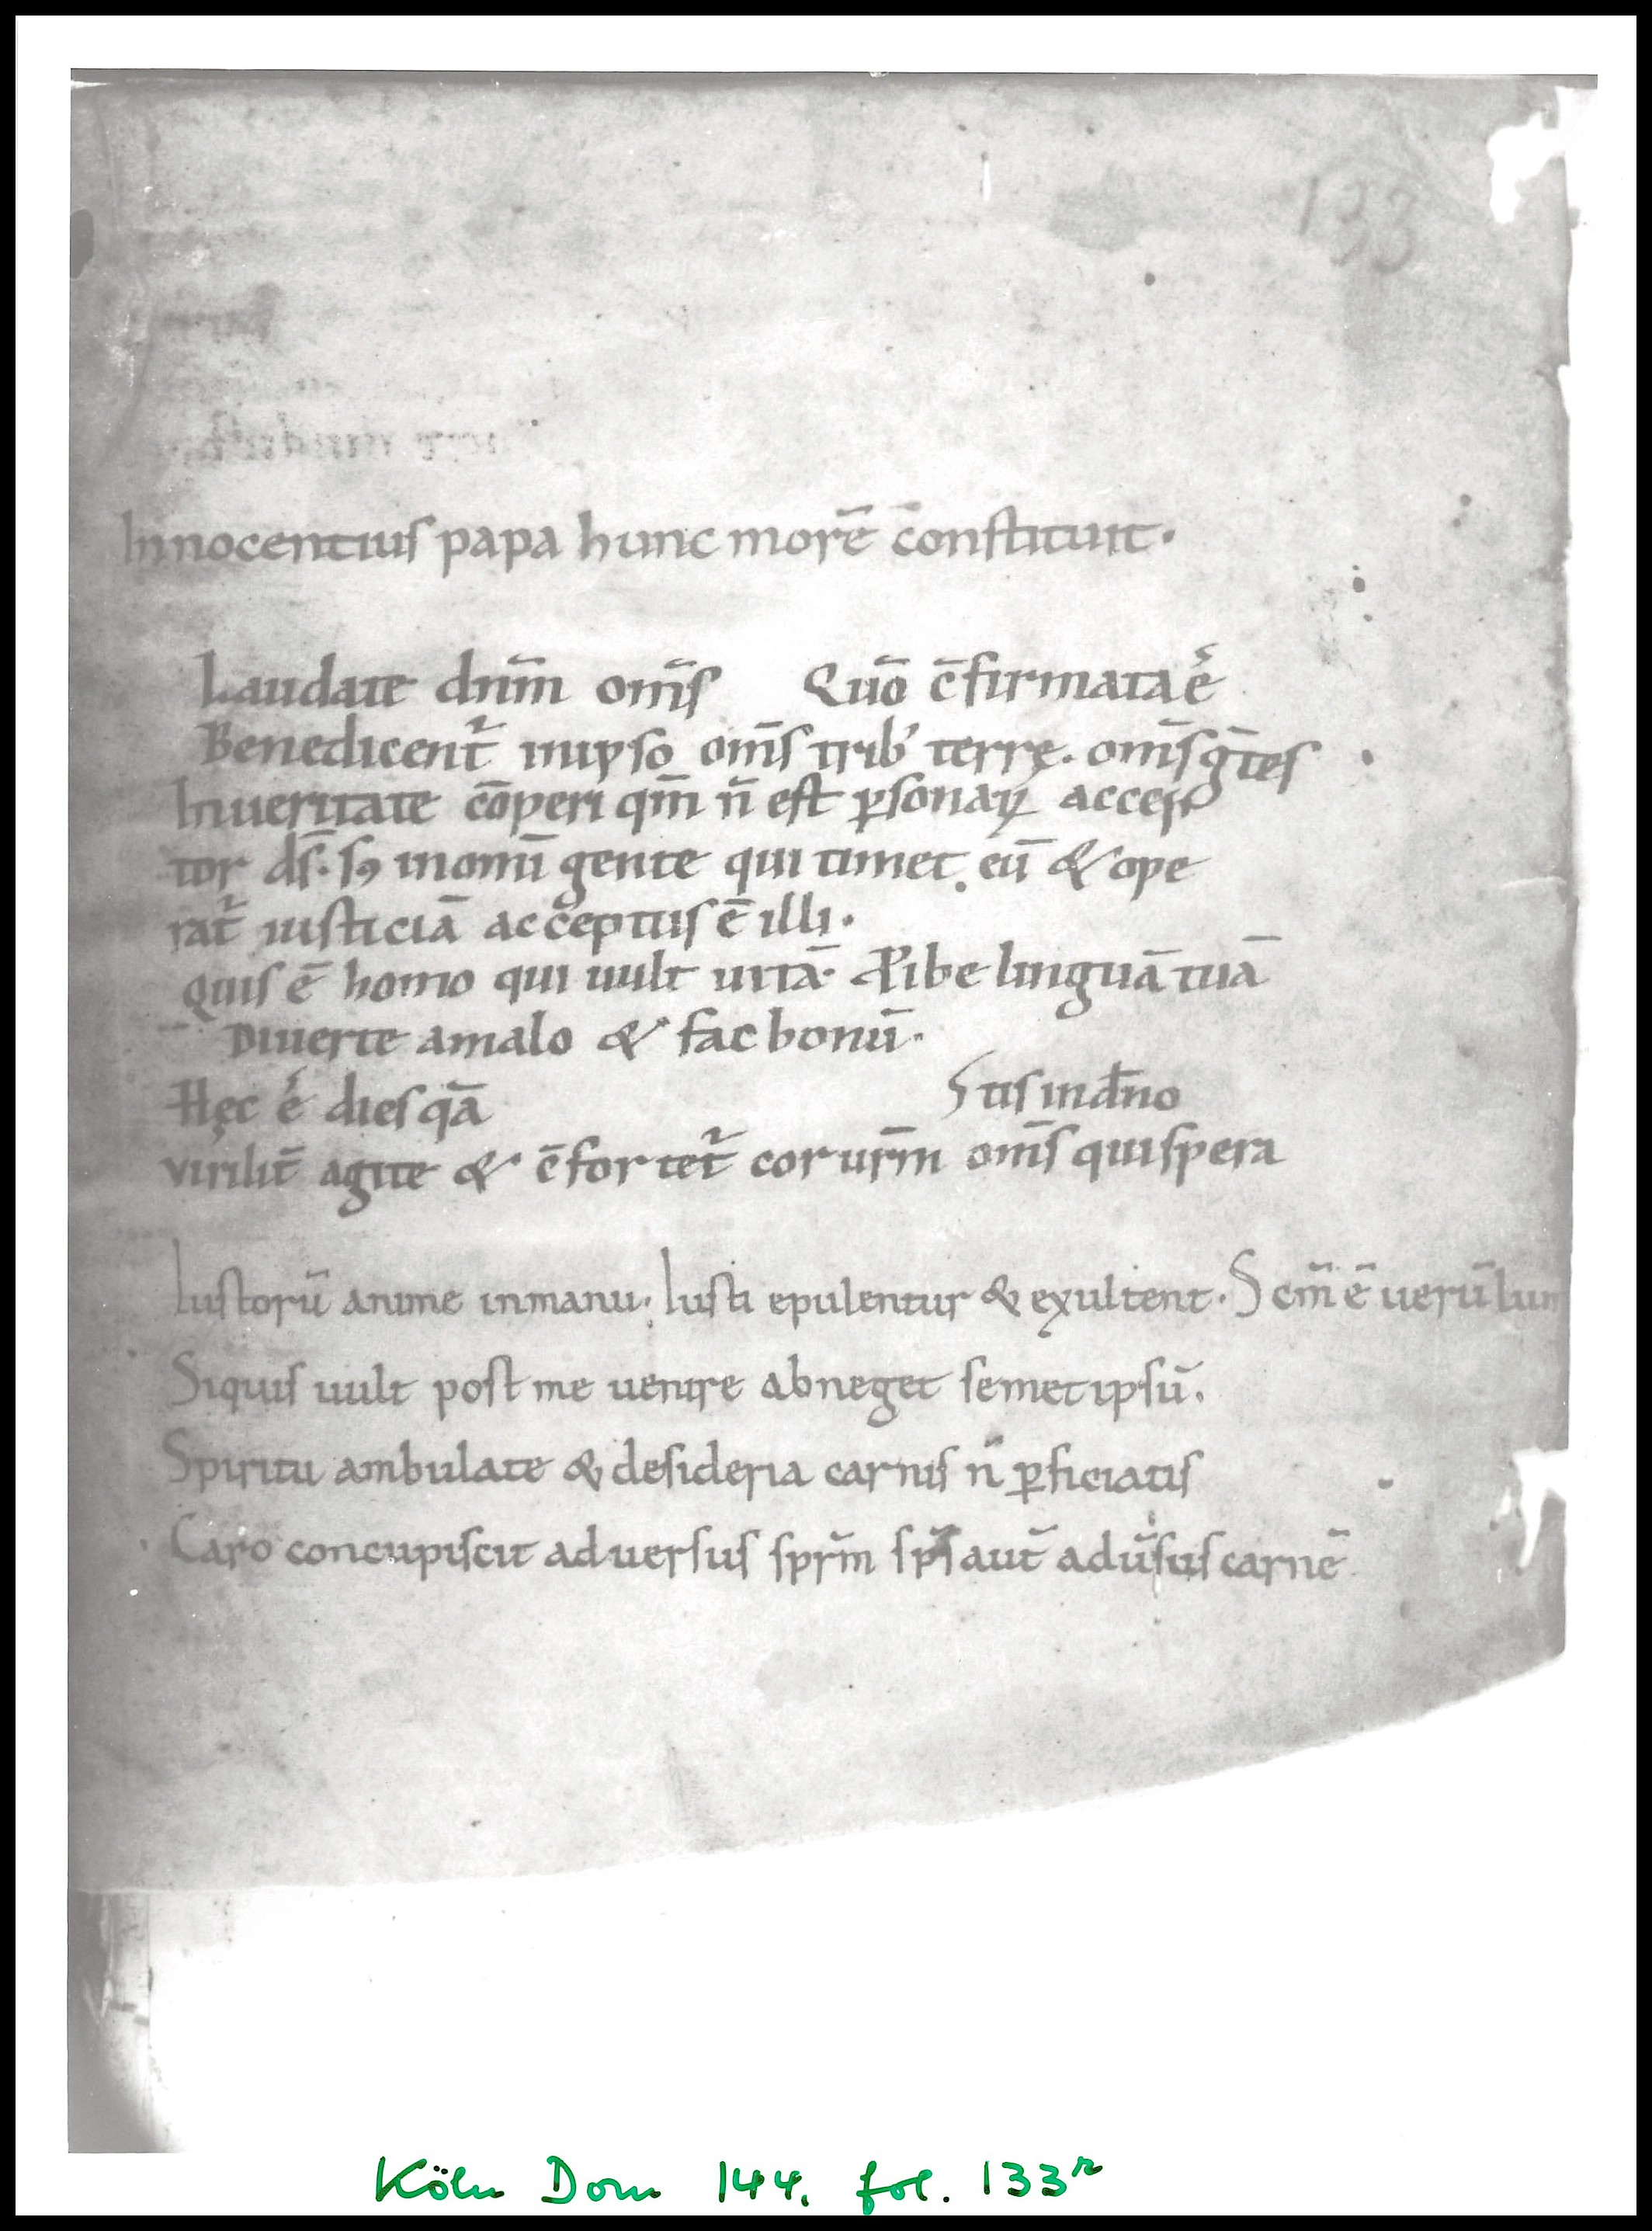 133
Innocentius papa hunc morē c̄onstituit.
Laudate dn̄m om̄s Quō c̄firmata ē
Benedicent᷑ inipso om̄s trib' terrę. om̄s ḡtes
Inueritate cōperi qm̄ n̄ est ꝑsonaꝝ accep
tor ds̄. sꝫ inomī gente qui timet eū & ope
rat᷑ iusticiā acceptus ē illi.
Quis ē homo qui uult uitā. linguā tuā
Diuerte amalo & fac bonū.
Hęc ē dies qā S tis in dn̄o
virilit̄ agite & c̄fortet᷑ cor ur̄m om̄s qui spera
Iustorū anime inmanu. Iusti epulentur & exultent. S cm̄ ē uerū lum
Siquis uult post me uenire abneget semetipsū.
Spiritu ambulate & desideria carnis n̄ ꝑficiatis
Caro concupiscit aduersus spr̄m sps̄ aut̄ adūsus carnē
Köln Dom 144, fol. 133r